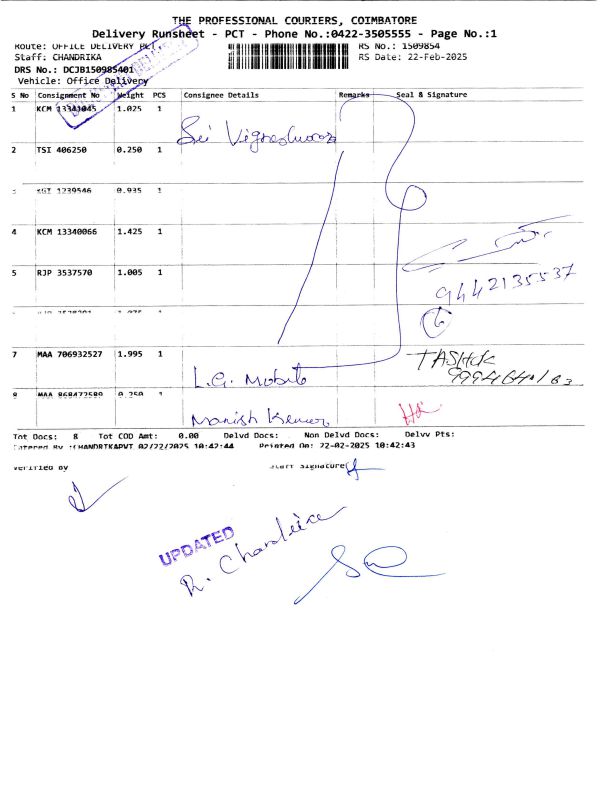 THE PROFESSIONAL COURIERS, COIMBATORE
Delivery Runsheet - PCT - Phone No.:0422-3505555 - Page No.:1
Route: OFFICE DELIVERY PCT RS No.: 1509854
Staff: CHANDRIKA RS Date: 22-Feb-2025
DRS No.: DCJB150985401
Vehicle: Office Delivery
S No Consignment No Weight PCS Consignee Details Remarks Seal & Signature
1 KCM 13341045 1.025 1
Sri Vigneshwara
2 TSI 406250 0.250 1
3 KGT 1239546 0.935 1
4 KCM 13340066 1.425 1
5 RJP 3537570 1.005 1
9442135537
6
7 MAA 706932527 1.995 1
L.G. Mobile
8 MAA 868472589 0.250 1
Manish Kumar
Tot Docs: 8 Tot COD Amt: 0.00 Delvd Docs: Non Delvd Docs: Delvv Pts:
Entered By :CHANDRIKAPVT 02/22/2025 10:42:44 Printed On: 22-02-2025 10:42:43
Verified By Staff Signature
UPDATED
R. Chandrika